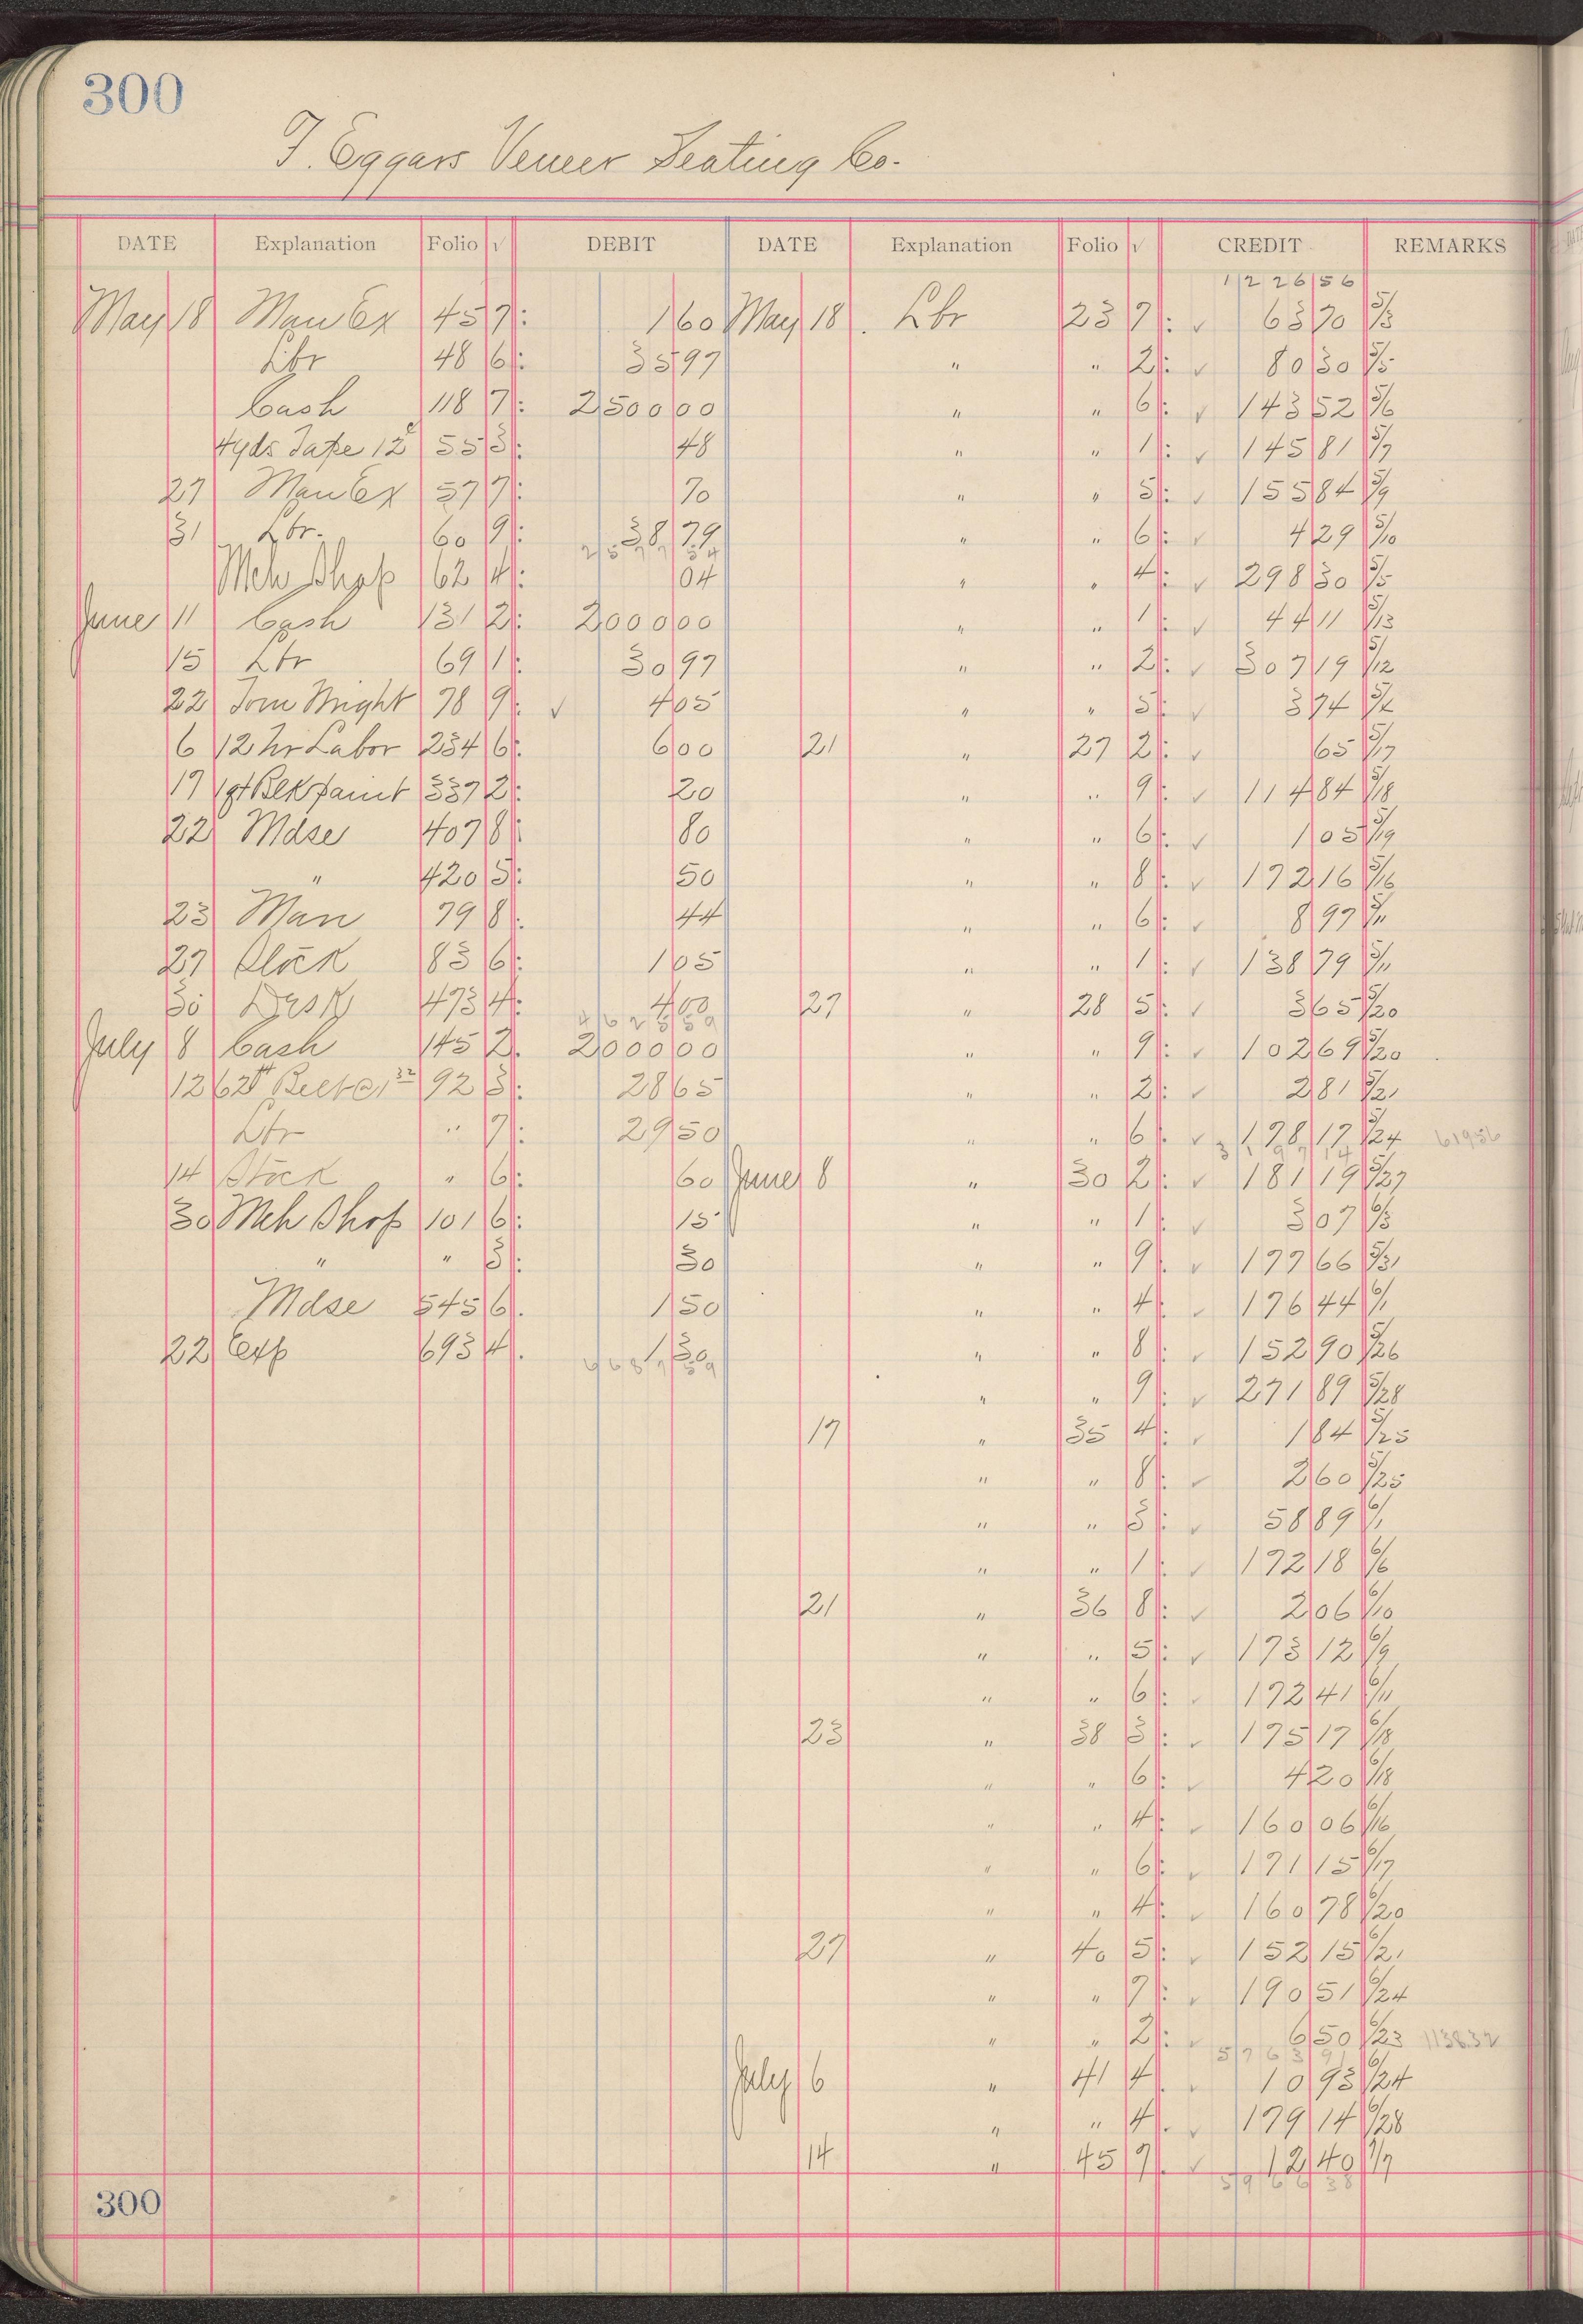 300
F. Eggars Veneer Seating Co.
DATE Explanation Folio √ DEBIT DATE Explanation Folio √ CREDIT REMARKS
1 2 26 56
May 18 Man Ex 45 7 1 60 May 18 Lbr 23 7 √ 63 70 5/3
Lbr 48 6 35 97 " " 2 √ 80 30 5/5
Cash 118 7 2500 00 " " 6 √ 143 52 5/6
4 yds Tape 12¢ 55 3 48 " " 1 √ 145 81 5/7
27 Man Ex 57 7 70 " " 5 √ 155 84 5/9
31 Lbr. 60 9 38 79 " " 6 √ 4 29 5/10
2577 54
Mch Shop 62 4 04 " " 4 √ 298 30 5/5
June 11 Cash 131 2 2000 00 " " 1 √ 44 11 5/13
15 Lbr 69 1 30 97 " " 2 √ 307 19 5/12
22 Tom Wright 78 9 √ 4 05 " " 5 √ 3 74
6 12 hr Labor 234 6 6 00 21 " 27 2 √ 65 5/17
17 1 qt Blk paint 337 2 20 " " 9 √ 114 84 5/18
22 Mdse 407 8 80 " " 6 √ 1 05 5/19
" 420 5 50 " " 8 √ 172 16 5/16
23 Man 79 8 44 " " 6 √ 8 97 5/11
27 Stock 83 6 1 05 " " 1 √ 138 79 5/11
30 Desk 473 4 4 00 27 " 28 5 √ 3 65 5/20
4625 59
July 8 Cash 145 2 2000 00 " " 9 √ 102 69 5/20
12 62ft Belt @ 1 32 92 3 28 65 " " 2 √ 2 81 5/21
Lbr " 7 29 50 " " 6 √ 178 17 5/24 619 56
3 1 9 7 14
14 Stock " 6 60 June 8 " 30 2 √ 181 19 5/27
30 Mch Shop 101 6 15 " " 1 √ 3 07 6/3
" " 3 30 " " 9 √ 177 66 5/31
Mdse 545 6 1 50 " " 4 √ 176 44 6/1
22 Exp 693 4 1 30 " " 8 √ 152 90 5/26
6687 59
" " 9 √ 271 89 5/28
17 " 35 4 √ 1 84 5/25
" " 8 √ 2 60 5/25
" " 3 √ 58 89 6/1
" " 1 √ 172 18 6/6
21 " 36 8 √ 2 06 6/10
" " 5 √ 173 12 6/9
" " 6 √ 172 41 6/11
23 " 38 3 √ 175 17 6/18
" " 6 √ 4 20 6/18
" " 4 √ 160 06 6/16
" " 6 √ 171 15 6/17
" " 4 √ 160 78 6/20
27 " 40 5 √ 152 15 6/21
" " 7 √ 190 51 6/24
" " 2 √ 6 50 6/23 1138.32
5763 91
July 6 " 41 4 √ 10 93 6/24
" " 4 √ 179 14 6/28
14 " 45 7 √ 12 40 7/7
5966 38
300